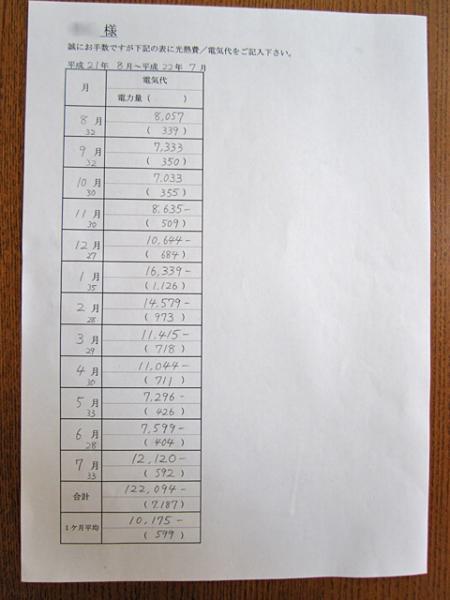 様
誠にお手数ですが下記の表に光熱費／電気代をご記入下さい。
平成 21年 8月～平成 22年 7月
月
電気代
電力量（ ）
8月
32
8,057
( 339)
9月
32
7,333
( 350)
10月
30
7,033
( 355)
11月
30
8,635-
( 509)
12月
27
10,644-
( 684)
1月
35
16,339-
(1,126)
2月
28
14,579-
( 973)
3月
29
11,415-
( 718)
4月
30
11,044-
( 711)
5月
33
7,296-
( 426)
6月
28
7,599-
( 404)
7月
33
12,120-
( 592)
合計
122,094-
(7,187)
1ヶ月平均
10,175-
( 599)